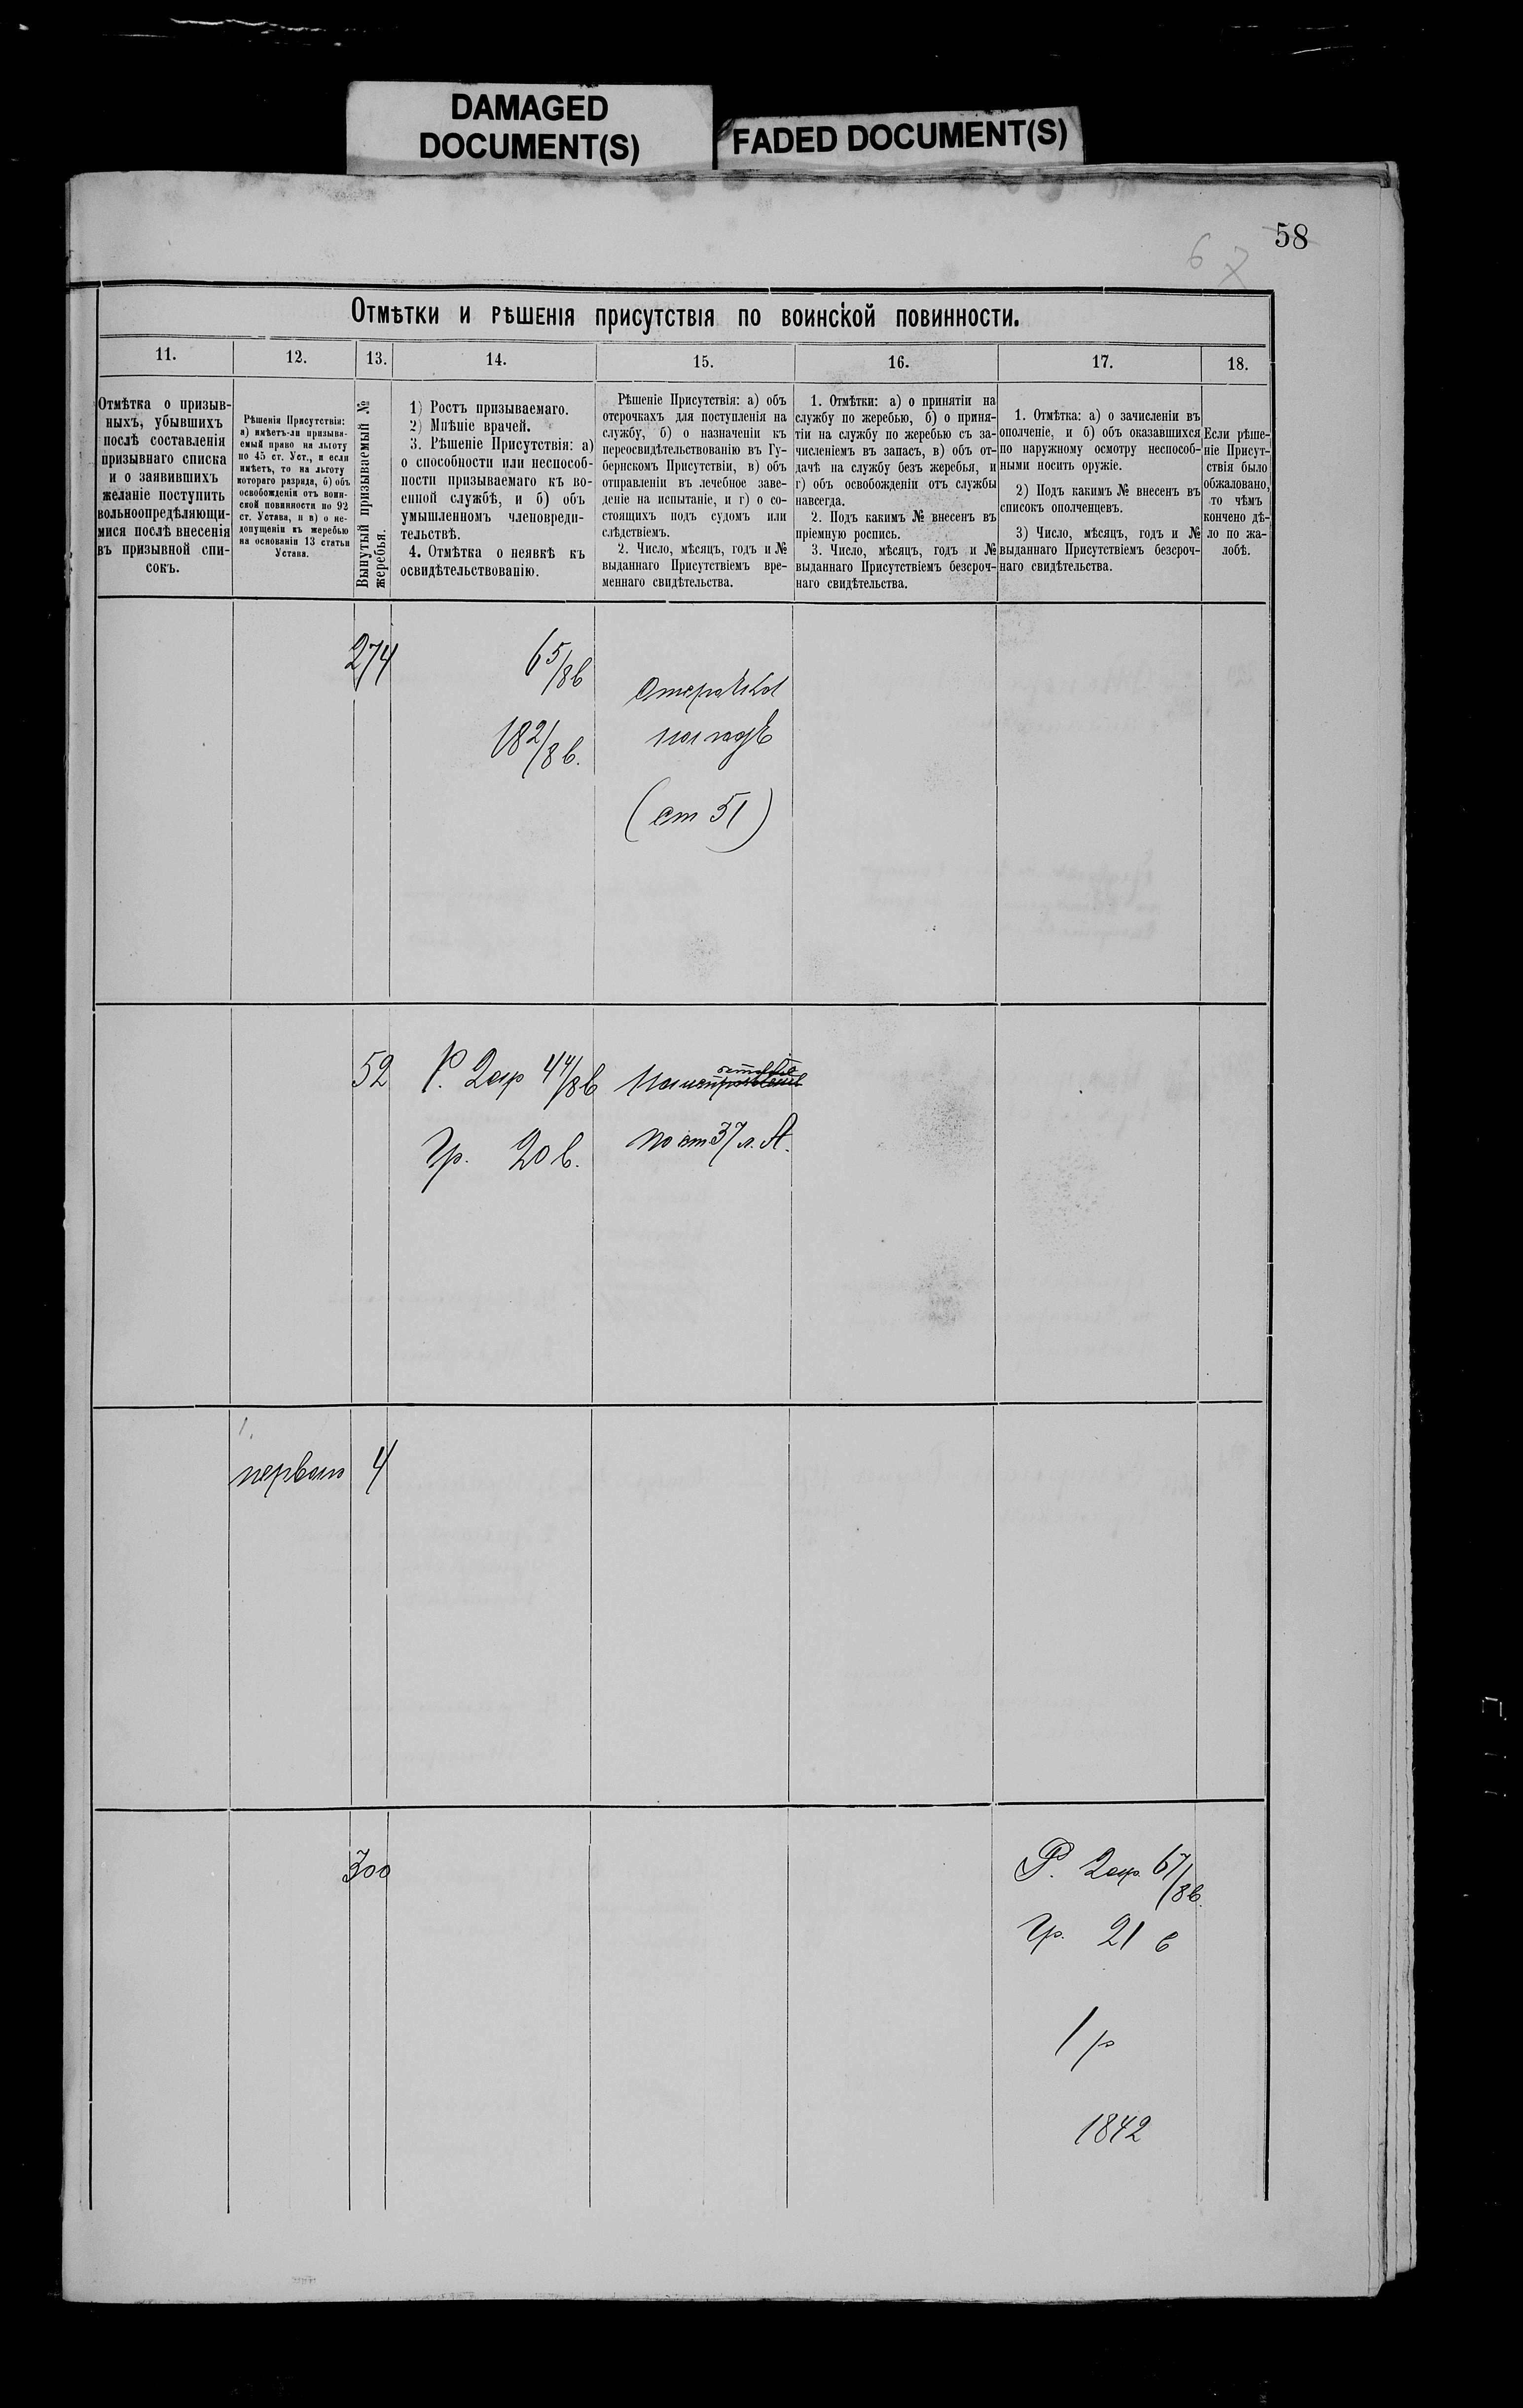 DAMAGED
DOCUMENT(S)
FADED DOCUMENT(S)
58
6 7
Отмѣтки и рѣшенія присутствія по воинской повинности.
11.
12.
13.
14.
15.
16.
17.
18.
Отмѣтка о призыв-
ныхъ, убывшихъ
послѣ составленія
призывнаго списка
и о заявившихъ
желаніе поступить
вольноопредѣляющи-
мися послѣ внесенія
въ призывной спи-
сокъ.
Рѣшенія Присутствія:
а) имѣетъ-ли призыва-
емый право на льготу
по 45 ст. Уст., и если
имѣетъ, то на льготу
котораго разряда, б) объ
освобожденіи отъ воин-
ской повинности по 92
ст. Устава, и в) о не-
допущеніи къ жеребью
на основаніи 13 статьи
Устава.
Вынутый призываемый №
жеребья.
1) Ростъ призываемаго.
2) Мнѣніе врачей.
3. Рѣшеніе Присутствія: а)
о способности или неспособ-
ности призываемаго къ во-
енной службѣ, и б) объ
умышленномъ членовреди-
тельствѣ.
4. Отмѣтка о неявкѣ къ
освидѣтельствованію.
Рѣшеніе Присутствія: а) объ
отсрочкахъ для поступленія на
службу, б) о назначеніи къ
переосвидѣтельствованію въ Гу-
бернскомъ Присутствіи, в) объ
отправленіи въ лечебное заве-
деніе на испытаніе, и г) о со-
стоящихъ подъ судомъ или
слѣдствіемъ.
2. Число, мѣсяцъ, годъ и №
выданнаго Присутствіемъ вре-
меннаго свидѣтельства.
1. Отмѣтки: а) о принятіи на
службу по жеребью, б) о приня-
тіи на службу по жеребью съ за-
численіемъ въ запасъ, в) объ от-
дачѣ на службу безъ жеребья, и
г) объ освобожденіи отъ службы
навсегда.
2. Подъ какимъ № внесенъ въ
пріемную роспись.
3. Число, мѣсяцъ, годъ и №
выданнаго Присутствіемъ безсроч-
наго свидѣтельства.
1. Отмѣтка: а) о зачисленіи въ
ополченіе, и б) объ оказавшихся
по наружному осмотру неспособ-
ными носить оружіе.
2) Подъ какимъ № внесенъ въ
списокъ ополченцевъ.
3) Число, мѣсяцъ, годъ и №
выданнаго Присутствіемъ безсроч-
наго свидѣтельства.
Если рѣше-
ніе Присут-
ствія было
обжаловано,
то чѣмъ
кончено дѣ-
ло по жа-
лобѣ.
274
6 5/8 в
18 2/8 в.
Отсрочка
на годъ
(ст 51)
52
Р. 2 ар 4 4/8 в
Гр. 20 в.
по ст 37 л. А.
1.
перваго
4
300
Р. 2 ар. 6 7/8 в.
Гр. 21 в
1 р
1842